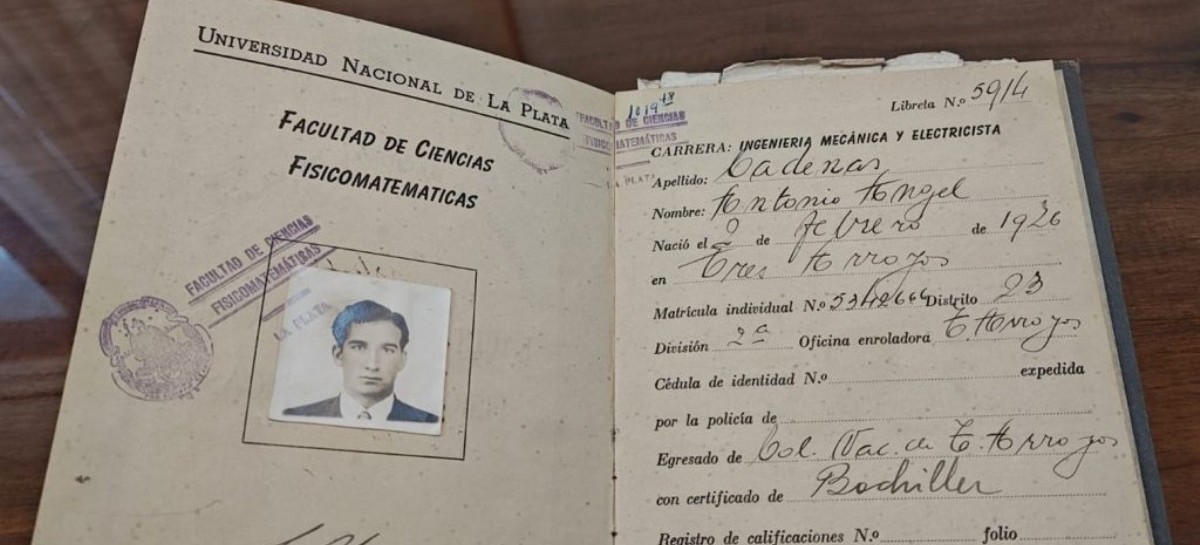 UNIVERSIDAD NACIONAL DE LA PLATA
FACULTAD DE CIENCIAS
FISICOMATEMATICAS
FACULTAD DE CIENCIAS
FISICOMATEMÁTICAS
LA PLATA
1019
FACULTAD DE CIENCIAS
FISICOMATEMÁTICAS
LA PLATA
Libreta N.º 5914
CARRERA: INGENIERIA MECÀNICA Y ELECTRICISTA
Apellido: Cadenas
Nombre: Antonio Angel
Nació el 2 de febrero de 1926
en Tres Arroyos
Matrícula individual N.º 5342666 Distrito 23
División 2ª Oficina enroladora T. Arroyos
Cédula de identidad N.º expedida
por la policía de
Egresado de Col. Nac. de T. Arroyos
con certificado de Bachiller
Registro de calificaciones N.º folio